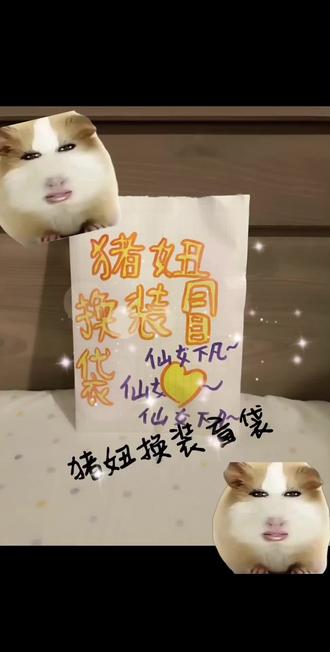 猪妞
换装冒
袋
仙女下凡~
仙女~
仙女下凡~
猪妞换装盲袋